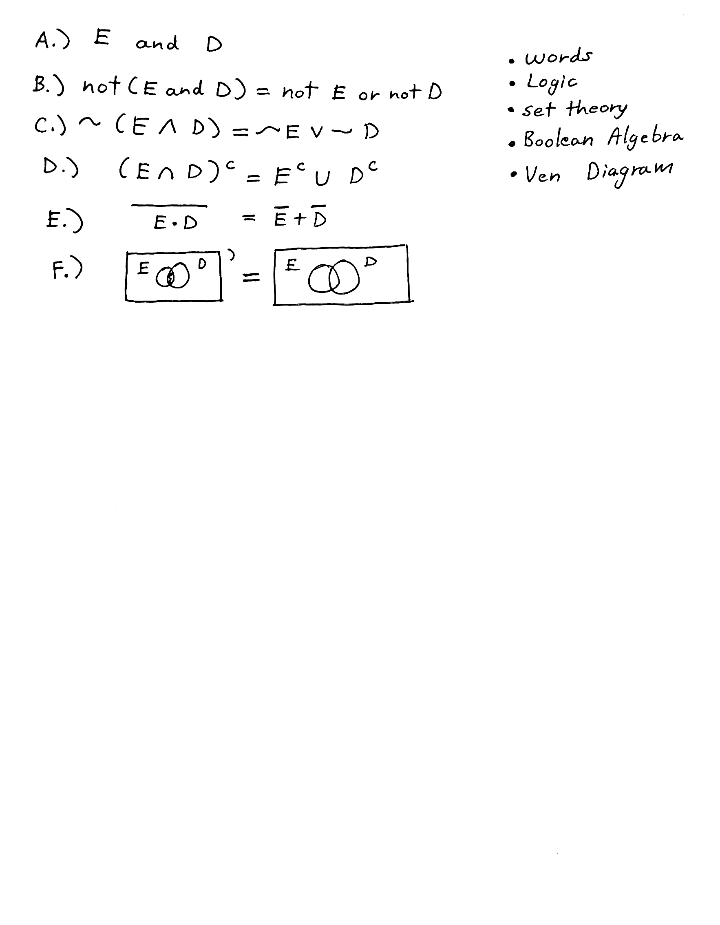 A.) E and D
B.) not (E and D) = not E or not D
C.) ~ (E ∧ D) = ~E ∨ ~ D
D.) (E ∩ D)ᶜ = Eᶜ ∪ Dᶜ
E.) \overline{E · D} = E̅ + D̅
F.) E D ) = E D
• words
• Logic
• set theory
• Boolean Algebra
• Ven Diagram